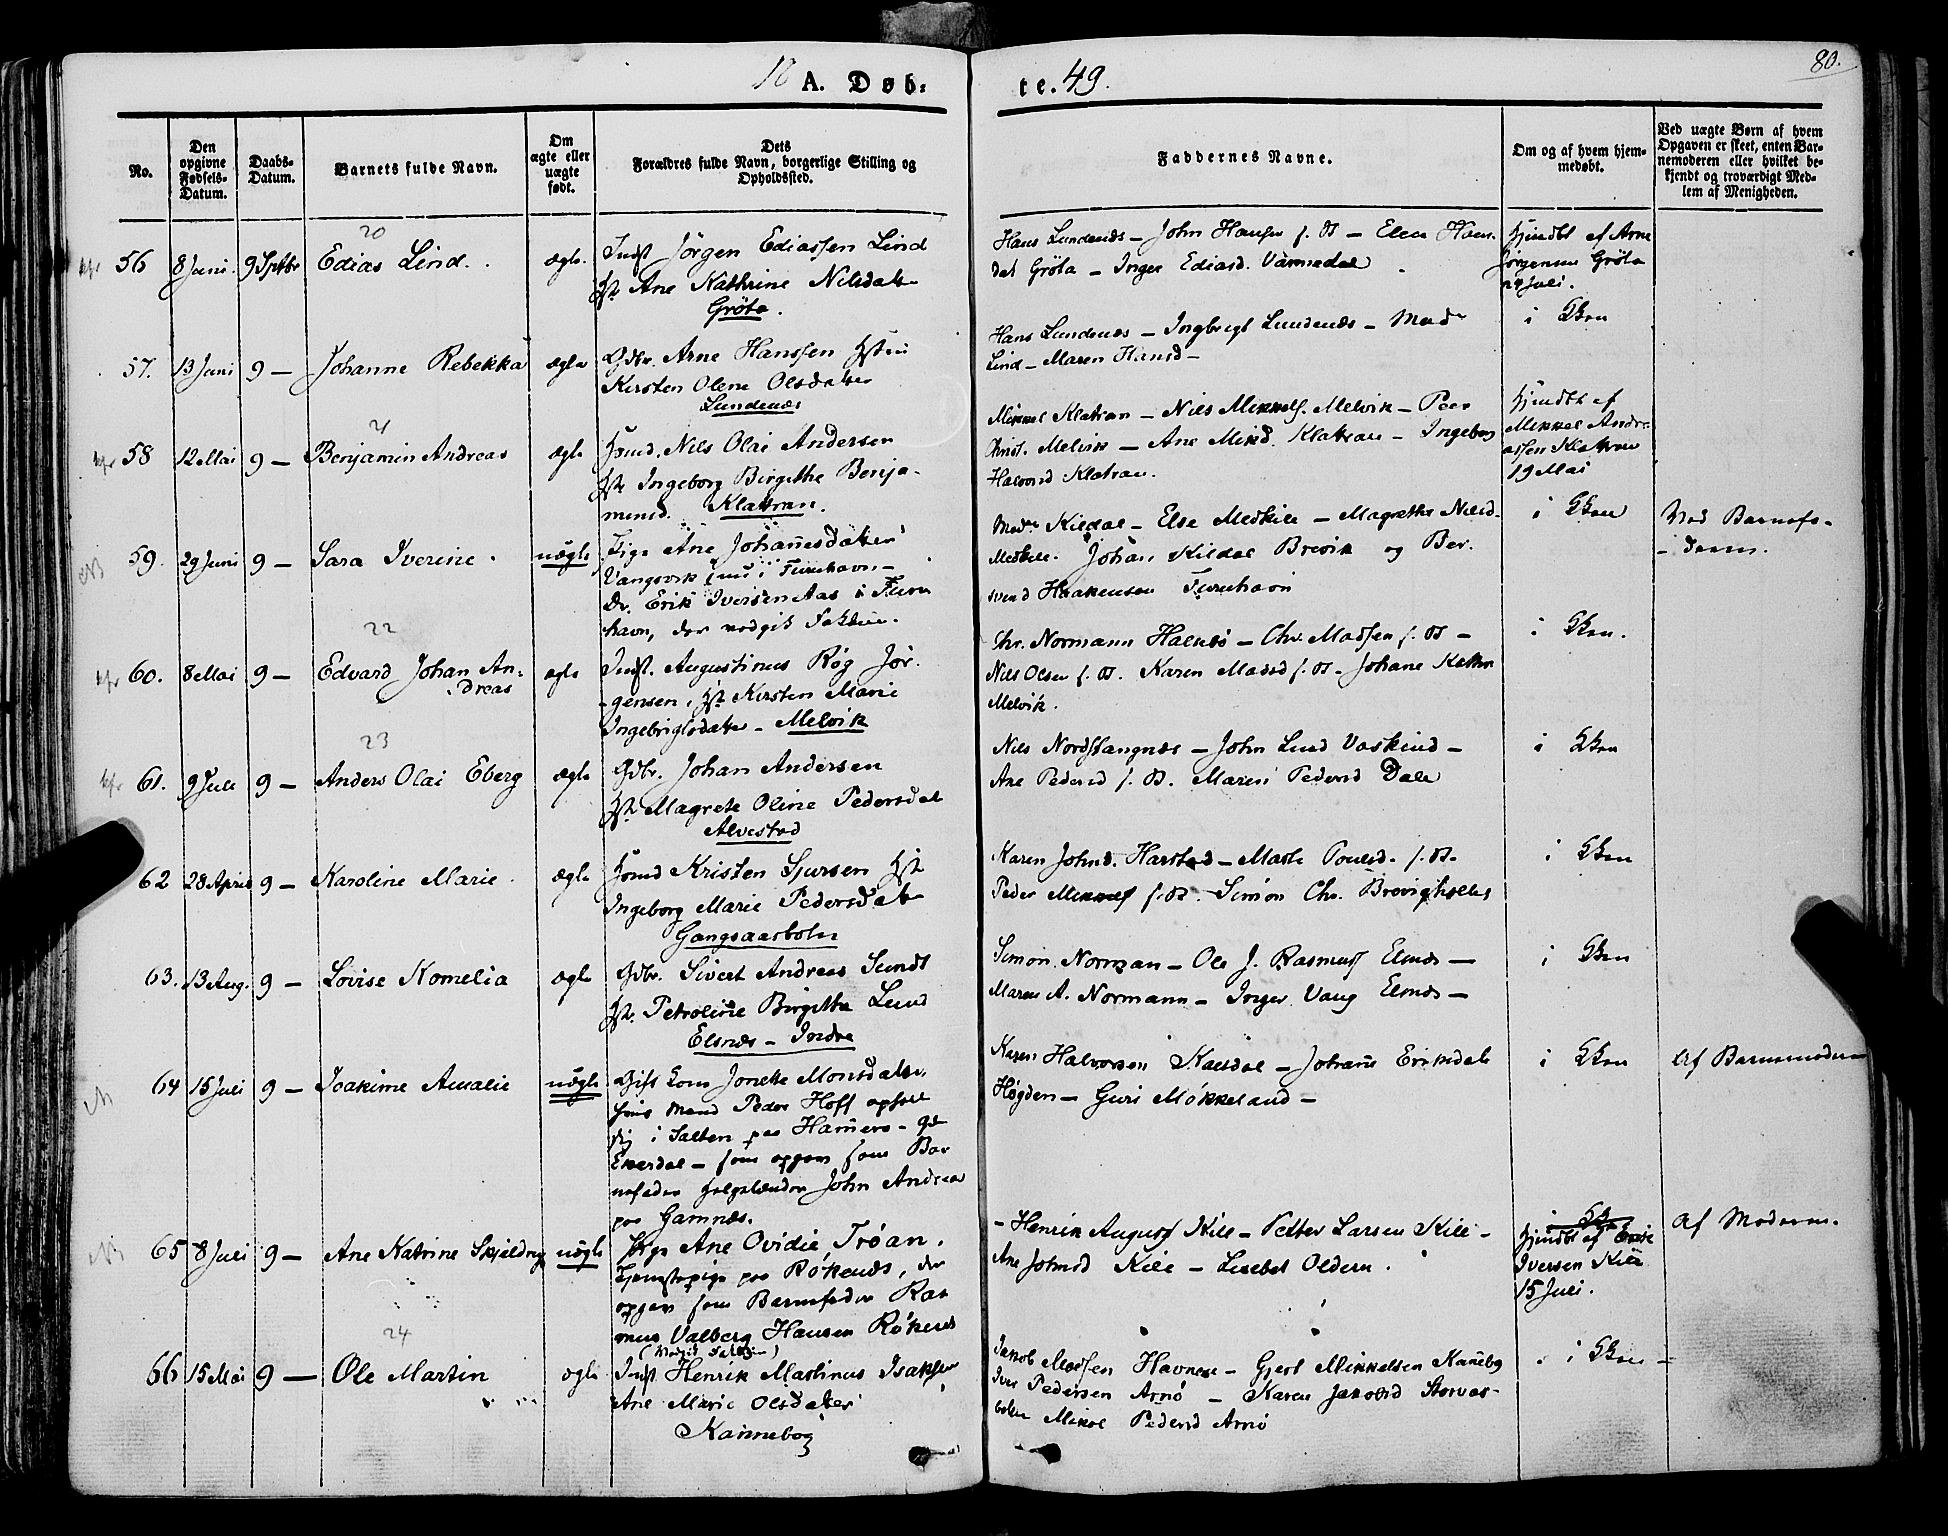 18 A. Døb-
te. 49.
80.
No.
Den
opgivne
Fødsels-
Datum.
Daabs-
Datum.
Barnets fulde Navn.
Om
ægte eller
uægte
født.
Dets
Forældres fulde Navn, borgerlige Stilling og
Opholdssted.
Faddernes Navne.
Om og af hvem hjem-
medøbt.
Ved uægte Børn af hvem
Opgaven er skeet, enten Bar-
nemoderen eller hvilket be-
kjendt og troværdigt Med-
lem af Menigheden.
20
56 8 Juni. 9 Sptbr Edias Lind. ægte.
Indst Jörgen Ediassen Lind
Hst Ane Kathrine Nilsdatr
Gröta.
Hans Lundenæs - John Hansen f. St - Elen Hans-
dat Gröta - Inger Ediasd. Varmedal
hjmdbt af Arne
Jörgensen Gröta
Juli.
57. 13 Juni 9 - Johanne Rebekka ægte
Gdbr. Arne Hanssen Hstru
Kirsten Olene Olsdatter
Lundenæs
Hans Lundenæs - Ingbrigt Lundenæs - Mad
Lind - Maren Hansd -
i Kken
21
58 12 Mai 9 - Benjamin Andreas ægte
Hsmd. Nils Olai Andersen
Hst Ingeborg Birgithe Benja-
minsd. Klattran.
Mikkel Klatran - Nils Mikkels. Melvik - Peer
Christ. Melvik - Ane Mikd. Klatran - Ingeborg
Halvorsd Klatran.
hjmdbt af
Mikkel Andre-
assen Klatran
19 Mai
59. 29 Juni 9 - Sara Iverine. uægte
Pige Ane Johannesdatter
Vangsvik (nu i Furuhavn -
Dr. Erik Iversen Aas i Furu
havn, der vedgik Faktum.
Kildal - Else Medkile - Magrethe Nilsd-
Medkile. Johan Kildal Brevik og Ber-
svend Haakensen Furuhavn
i Kken
Ved Barnefa-
- deren.
22
60. 8 Mai 9 - Edvard Johan An-
dreas ægte
Indst. Augustinus Røg Jör-
gensen, Hst Kirsten Marie
Ingebrigtsdatter - Melvik
Chr. Normann Halnæs - Chr. Madsen f. St -
Nils Olsen f. St. Karen Madsd f. St - Johane Kathr
Melvik.
i Kken.
23
61. 9 Juli 9 - Anders Olai Eberg ægte
Gdbr. Johan Andersen
Hst Magrete Oline Pedersdat
Alvestad
Nils Nordstangnæs - John Lund Voskind -
Ane Pedersd f. St. Maren Pedersd Dale
i Kken
62 28 April 9 - Karoline Marie. ægte
Hsmd Kristen Sjursen Hst
Ingeborg Marie Pedersdatr
Gangsaasbotn
Karen Johnd. Harstad - Marte Poulsd. f. St.
Peder Mikkels f. St. Simon Chr. Brevigholles
i Kken
63. 13 Aug. 9 - Lovise Kornelia ægte
Gdbr. Sivert Andreas Lund
Hst. Petroline Birgitha Lund
Elsnæs - Indre
Simon Norman - Ole J. Rasmuss Elsnæs -
Maren A. Normann - Inger Vang Elsnæs -
i Kken
64 15 Juli 9 - Joakime Amalie uægte
Gift Kone Jonette Monsdatter.
hins Mand Peder Hoff ophold
sig i Salten paa Hamerø - Gd
- som opgav som Bar
nefader Helgelænder John Andreas
paa Gamnæs.
Karen Halvorsen Kasdal - Johane Eriksdatr
Høgden - Guri Møkkeland -
i Kken
Af Barnemoderen
65 8 Juli 9 - Ane Katrine Skjeldrup uægte
Pige Ane Ovidie Trøan.
Tjenstepige paa Røkenæs, der
opgav som Barnefader Ras
mus Valberg Hansen Røkenæs
(Vedgik Faktum)
- Henrik August Kile - Petter Larsen Kile -
Ane Johnsd Kile - Lisebet Olderen.
i Kken
hjmdbt af
Iversen Kile
15 Juli.
Af Moderen.
24
66 15 Mai 9 - Ole Martin ægte
Indst Henrik Martinus Isaksen
Ane Marie Olsdatter
Kannebog
Jakob Madsen Havnene - Gjert Mikkelsen Kannebog
Iver Pedersen Arnö - Karen Jakobsd Storvas-
botn Mikal Pedersd Arnö
i Kken -